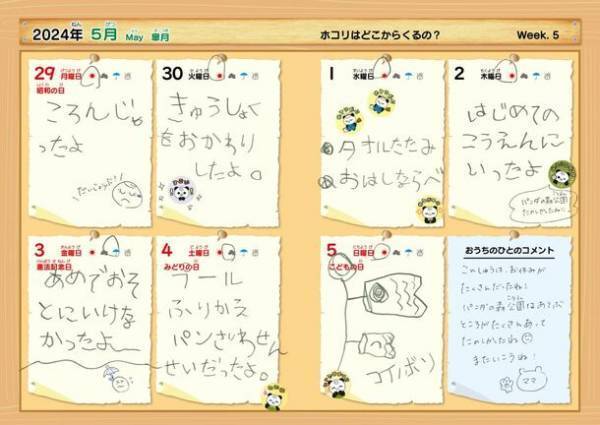 2024年 5月 May 皐月
ホコリはどこからくるの?
Week. 5
29 月曜日
昭和の日
ころんじゃ
ったよ
だいじょうぶ?
30 火曜日
きゅうしょく
をおかわり
したよ。
1 水曜日
タオルたたみ
おはしならべ
2 木曜日
はじめての
こうえんに
いったよ
パンダの森公園
たのしかったね!
3 金曜日
憲法記念日
あめでおそ
とにいけな
かったよ
4 土曜日
みどりの日
プール
ふりかえ
パンざわせん
せいだったよ。
5 日曜日
こどもの日
コイノボリ
おうちのひとのコメント
このしゅうは、お休みが
たくさんだったね!
パンダの森公園はあそぶ
ところがたくさんあって
たのしかったね
またいこうね!
ママ